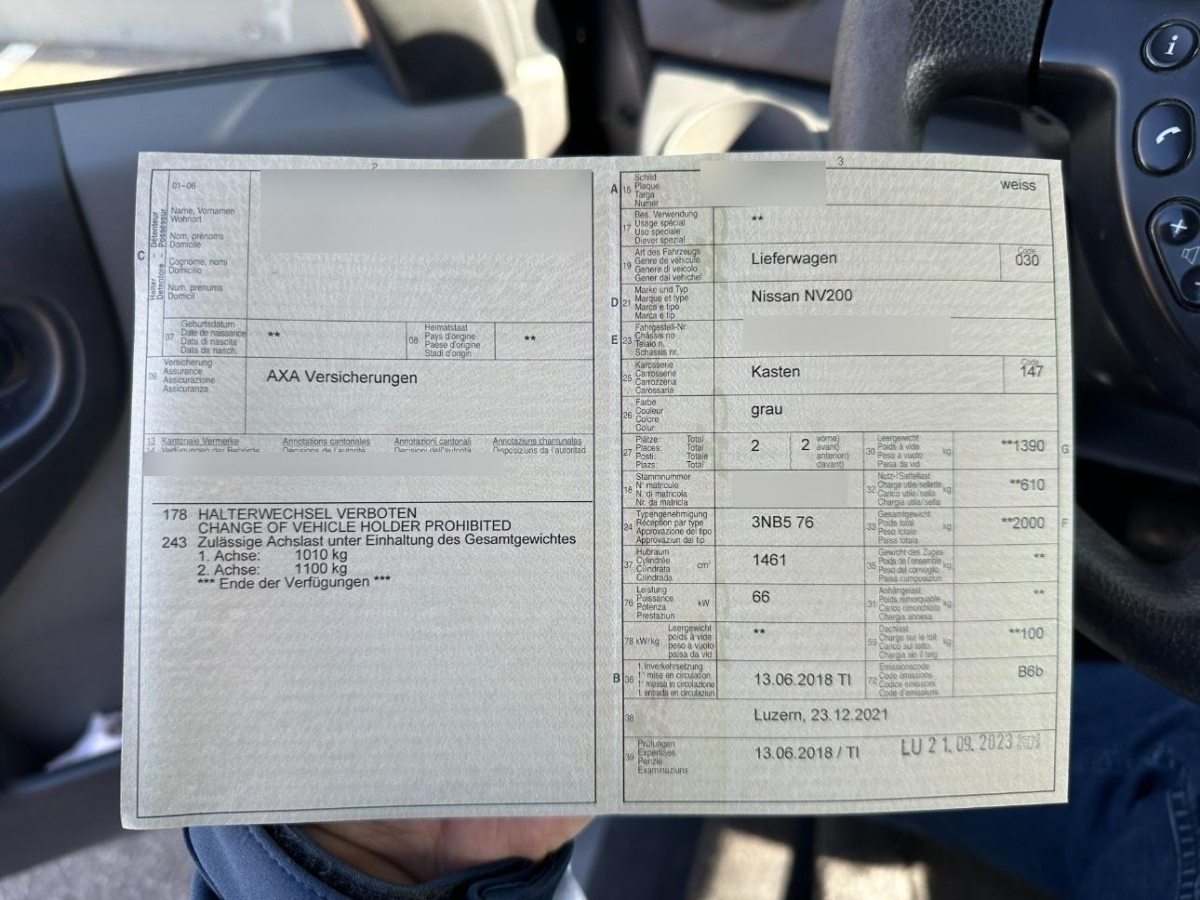 2
01–06
Name, Vornamen
Wohnort
Nom, prénoms
Domicile
Cognome, nomi
Domicilio
Num, prenums
Domicil
C
Halter - Détenteur
Detentore - Possessur
07
Geburtsdatum
Date de naissance
Data di nascita
Data da nasch.
**
08
Heimatstaat
Pays d'origine
Paese d'origine
Stadi d'origin
**
09
Versicherung
Assurance
Assicurazione
Assicuranza
AXA Versicherungen
13 Kantonale Vermerke Annotations cantonales Annotazioni cantonali Annotaziuns chantunalas
14 Verfügungen der Behörde Décisions de l'autorité Decisioni dell'autorità Disposiziuns da l'autoritad
178 HALTERWECHSEL VERBOTEN
CHANGE OF VEHICLE HOLDER PROHIBITED
243 Zulässige Achslast unter Einhaltung des Gesamtgewichtes
1. Achse: 1010 kg
2. Achse: 1100 kg
*** Ende der Verfügungen ***
3
A 15
Schild
Plaque
Targa
Numer
weiss
17
Bes. Verwendung
Usage spécial
Uso speciale
Diever spezial
**
19
Art des Fahrzeugs
Genre de véhicule
Genere di veicolo
Gener dal vehichel
Lieferwagen
Code
030
D 21
Marke und Typ
Marque et type
Marca e tipo
Marca e tip
Nissan NV200
E 23
Fahrgestell-Nr.
Châssis no
Telaio n.
Schassis nr.
25
Karosserie
Carrosserie
Carrozzeria
Carossaria
Kasten
Code
147
26
Farbe
Couleur
Colore
Colur
grau
27
Plätze: Total
Places: Total
Posti: Totale
Plazs: Total
2
2
vorne)
avant)
anteriori)
davant)
30
Leergewicht
Poids à vide
Peso a vuoto
Paisa da vid
kg
**1390
G
18
Stammnummer
N° matricule
N. di matricola
Nr. da matricla
32
Nutz-/Sattellast
Charge utile/sellette
Carico utile/sella
Chargia utila/sella
kg
**610
24
Typengenehmigung
Réception par type
Approvazione del tipo
Approvaziun dal tip
3NB5 76
33
Gesamtgewicht
Poids total
Peso totale
Paisa totala
kg
**2000
F
37
Hubraum
Cylindrée
Cilindrata
Cilindrada
cm³
1461
35
Gewicht des Zuges
Poids de l'ensemble
Peso del convoglio
Paisa cumposiziun
kg
**
76
Leistung
Puissance
Potenza
Prestaziun
kW
66
31
Anhängelast
Poids remorquable
Carico rimorchiato
Chargia annexa
kg
**
78 kW/kg
Leergewicht
poids à vide
peso a vuoto
paisa da vid
**
55
Dachlast
Charge sur le toit
Carico sul tetto
Chargia sin il tetg
kg
**100
B 36
1. Inverkehrsetzung
1re mise en circulation
1a messa in circolazione
1. entrada en circulaziun
13.06.2018 TI
72
Emissionscode
Code émissions
Codice emissioni
Code d'emissiuns
B6b
38
Luzern, 23.12.2021
39
Prüfungen
Expertises
Perizie
Examinaziuns
13.06.2018 / TI
LU 21. 09. 2023
i
+